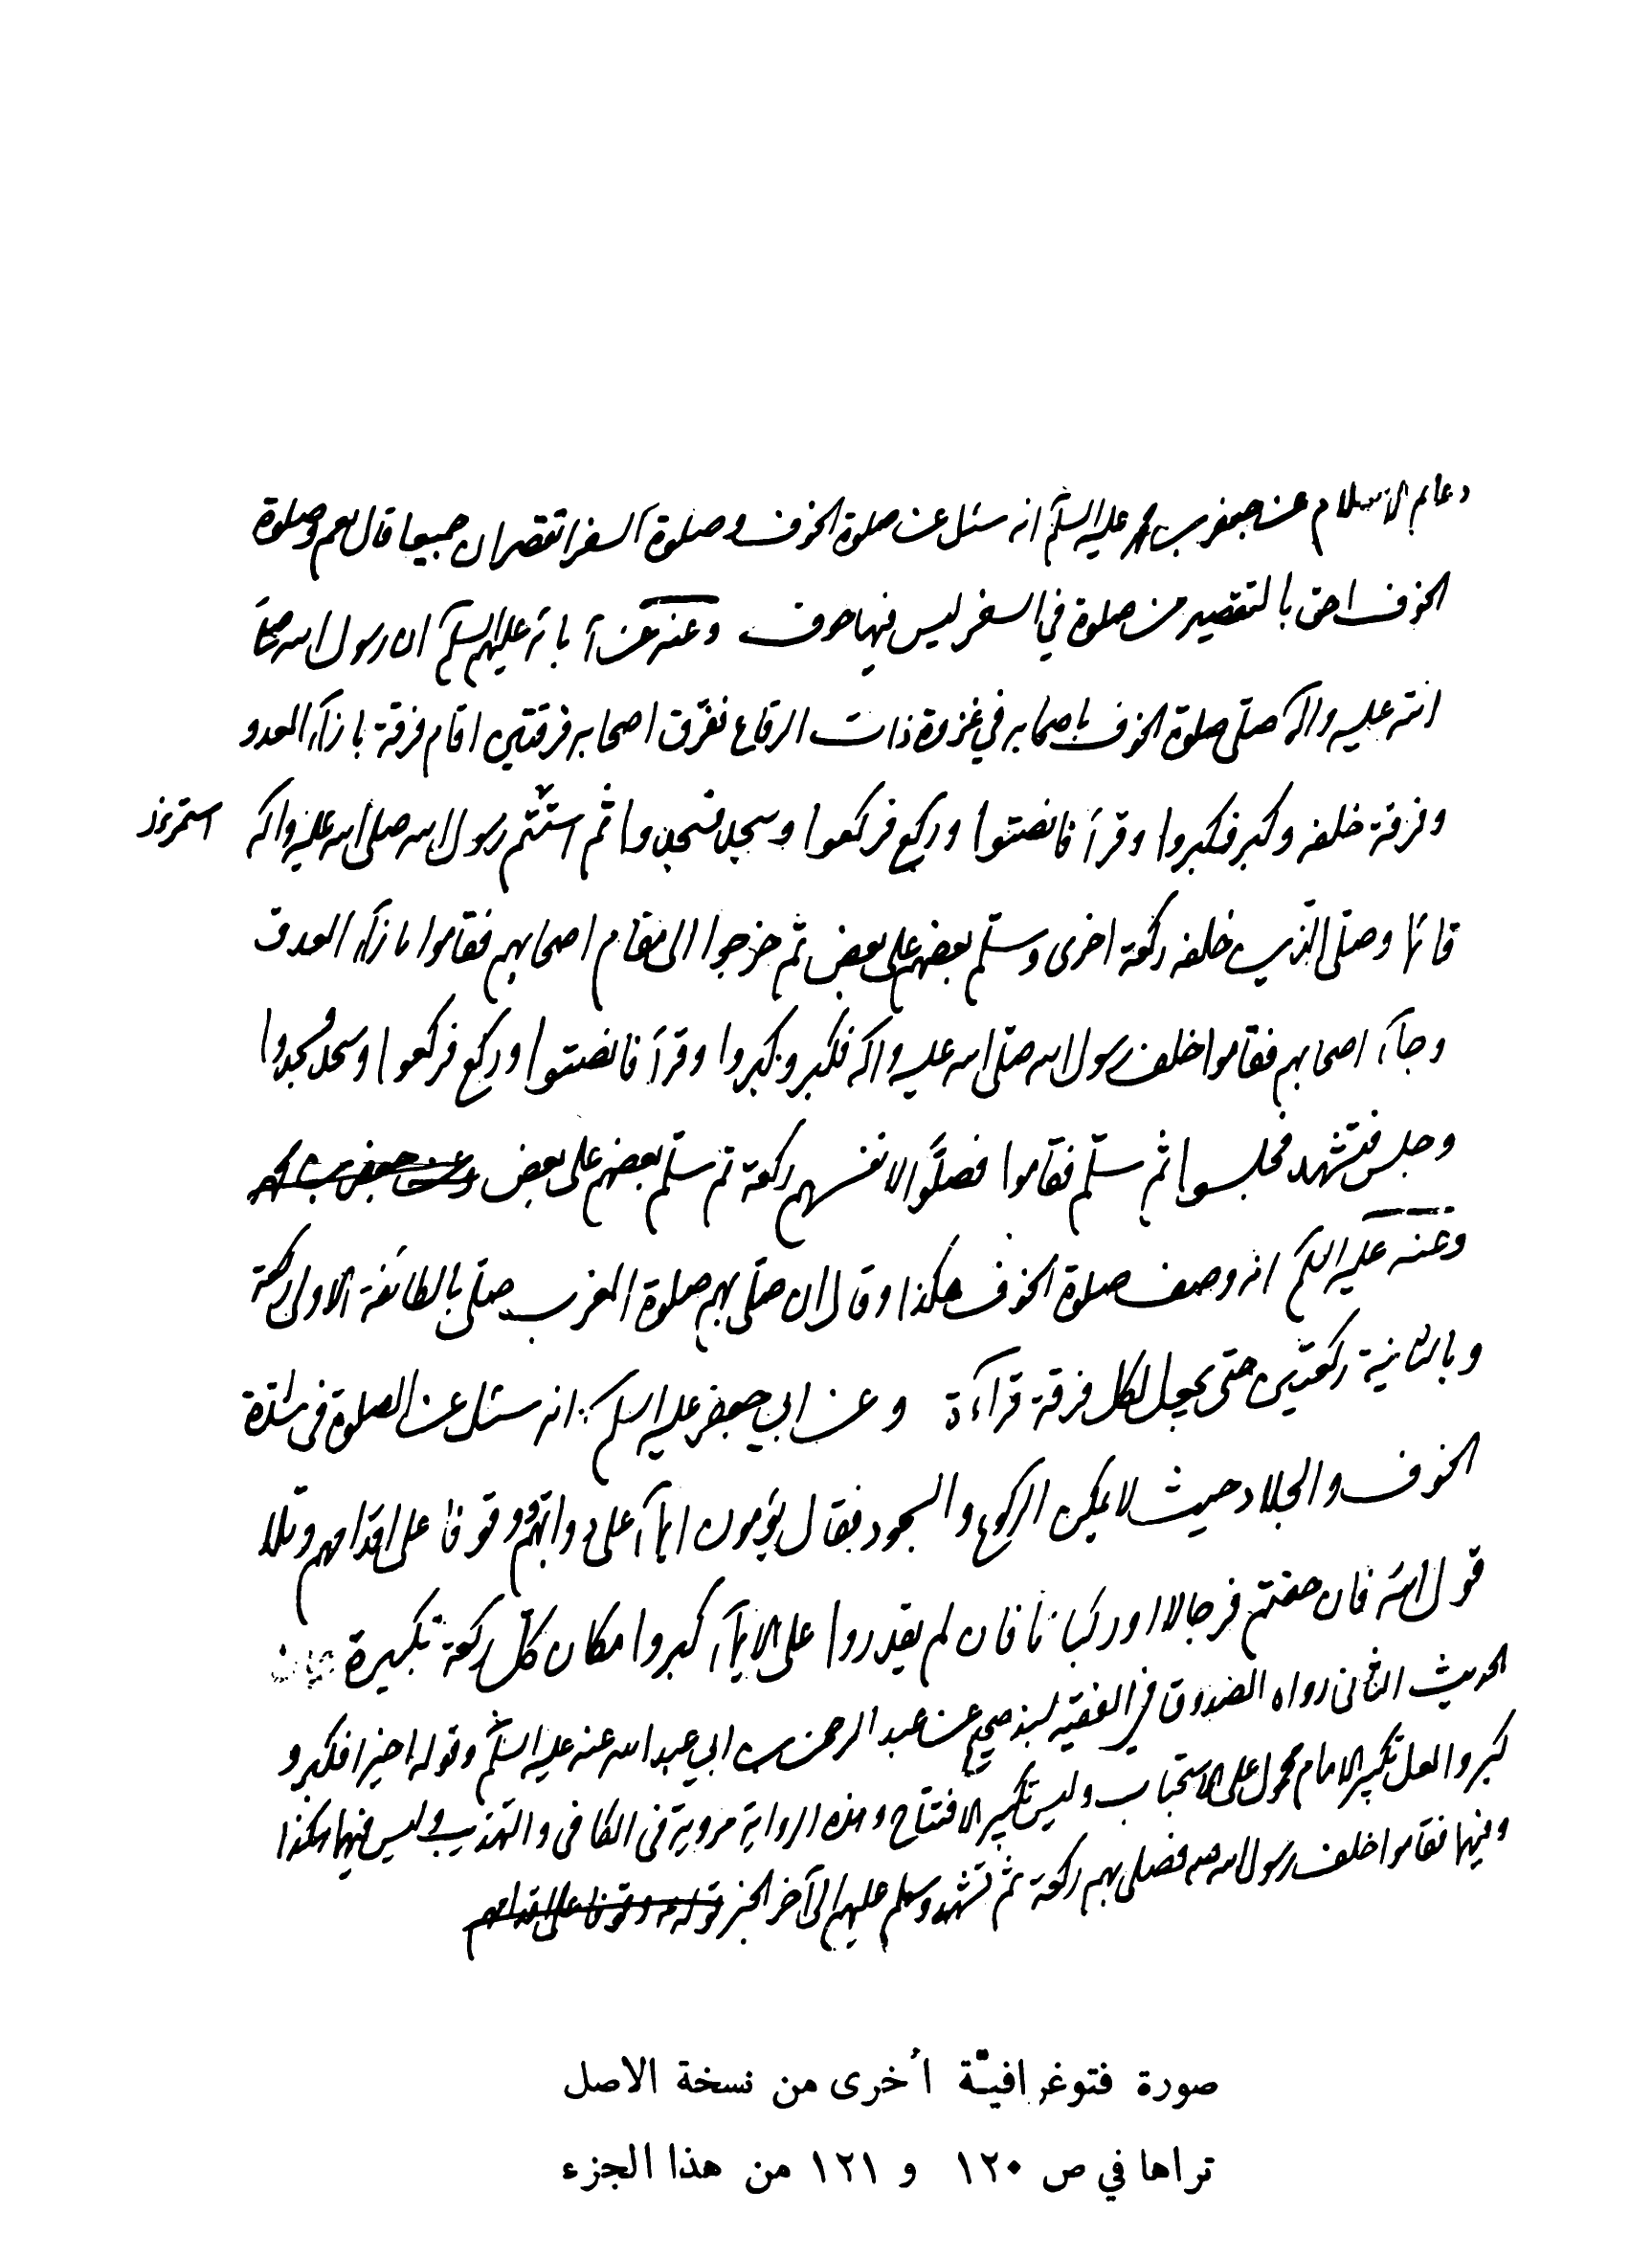 دعائم الاسلام عن جعفر بن محمد عليه السلم انه سئل عن صلوة الخوف وصلوة السفر اتقصران جميعا قال نعم وصلوة
الخوف احق بالتقصير من صلوة في السفر ليس فيها خوف وعنه عن آبائه عليهم السلم ان رسول الله صلى
الله عليه واله صلى صلوة الخوف باصحابه في غزوة ذات الرقاع ففرق اصحابه فرقتين اقام فرقة بازاء العدو
وفرقة خلفه وكبر فكبروا وقرأ فانصتوا وركع فركعوا وسجد فسجدوا ثم استتم رسول الله صلى الله عليه واله
قائما وصلى الذين خلفه ركعة اخرى وسلم بعضهم على بعض ثم خرجوا الى مقام اصحابهم فقاموا بازاء العدو
وجاء اصحابهم فقاموا خلف رسول الله صلى الله عليه واله فكبر وكبروا وقرأ فانصتوا وركع فركعوا وسجد فسجدوا
وجلس فتشهد فجلسوا ثم سلم فقاموا فصلوا لانفسهم ركعة ثم سلم بعضهم على بعض وعن جعفر بن محمد
وعنه عليه السلم انه وصف صلوة الخوف هكذا وقال ان صلى بهم صلوة المغرب صلى بالطائفة الاولى ركعة
وبالثانية ركعتين حتى يجعل لكل فرقة قرآءة وعن ابي جعفر عليه السلم انه سئل عن الصلوة في شدة
الخوف والجلاد حيث لا يمكن الركوع والسجود فقال يؤمون ايمآء على دوابهم ووقوفا على اقدامهم وتلا
قول الله فان خفتم فرجالا او ركبانا فان لم يقدروا على الايمآء كبروا مكان كل ركعة تكبيرة
الحديث الثاني رواه الصدوق في الفقيه بسند صحيح عن عبد الرحمن بن ابي عبد الله عنه عليه السلم وقوله اخيرا فكبر و
كبروا لعل تكبير الامام محمول على الاستحباب وليس تكبير الافتتاح وهذه الرواية مروية في الكافي والتهذيب وليس فيها هكذا
وفيها فقاموا خلف رسول الله ص فصلى بهم ركعة ثم تشهد وسلم عليهم الى آخر الخبر قوله ووقوفا على اقدامهم
صورة فتوغرافيّة أخرى من نسخة الاصل
تراها في ص ١٢٠ و ١٢١ من هذا الجزء